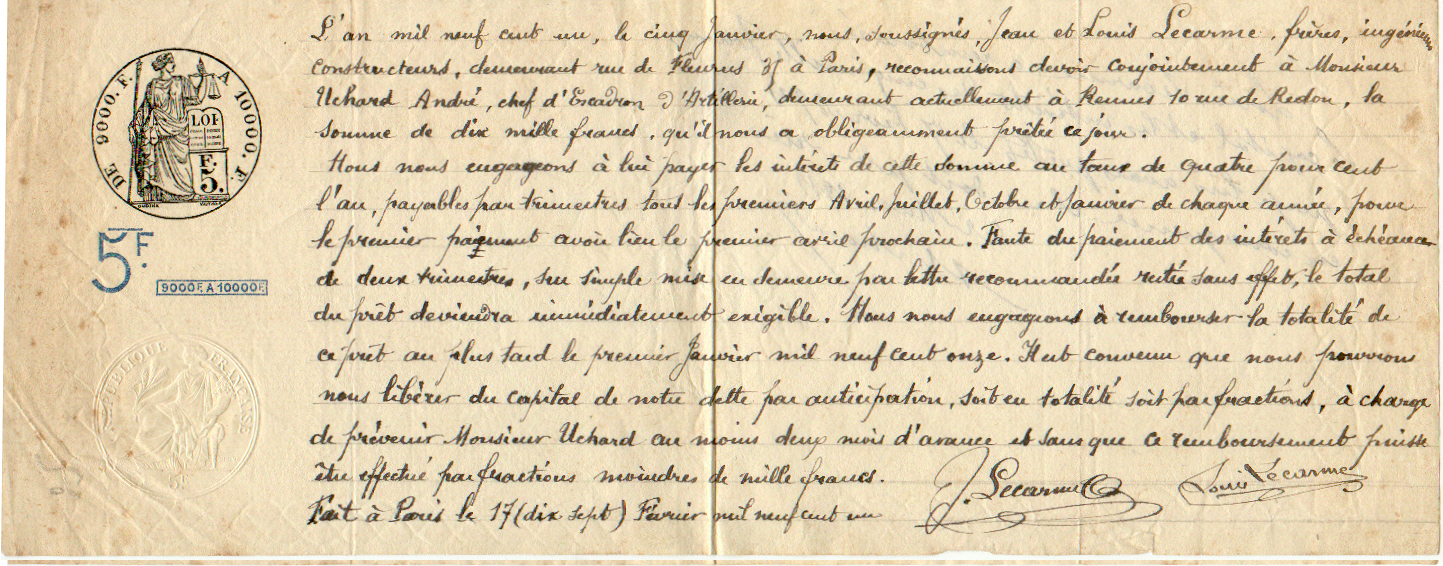 DE 9000.F. A 10000.F.
LOI
F.
5.
5F.
9000F. A 10000F.
RÉPUBLIQUE FRANÇAISE
L'an mil neuf cent un, le cinq Janvier, nous, soussignés, Jean et Louis Lecarme, frères, ingénieurs
constructeurs, demeurant rue de Fleurus à Paris, reconnaissons devoir conjointement à Monsieur
Uchard André, chef d'Escadron d'Artillerie, demeurant actuellement à Rennes 10 rue de Redon, la
somme de dix mille francs, qu'il nous a obligeamment prêtée ce jour.
Nous nous engageons à lui payer les intérêts de cette somme au taux de quatre pour cent
l'an, payables par trimestres tous les premiers Avril, Juillet, Octobre et Janvier de chaque année, pour
le premier paiement avoir lieu le premier avril prochain. Faute du paiement des intérêts à échéance
de deux trimestres, sur simple mise en demeure par lettre recommandée restée sans effet, le total
du prêt deviendra immédiatement exigible. Nous nous engageons à rembourser la totalité de
ce prêt au plus tard le premier Janvier mil neuf cent onze. Il est convenu que nous pourrons
nous libérer du capital de notre dette par anticipation, soit en totalité soit par fractions, à charge
de prévenir Monsieur Uchard au moins deux mois d'avance et sans que ce remboursement puisse
être effectué par fractions moindres de mille francs.
Fait à Paris le 17 (dix sept) Février mil neuf cent un
J. Lecarme
Louis Lecarme